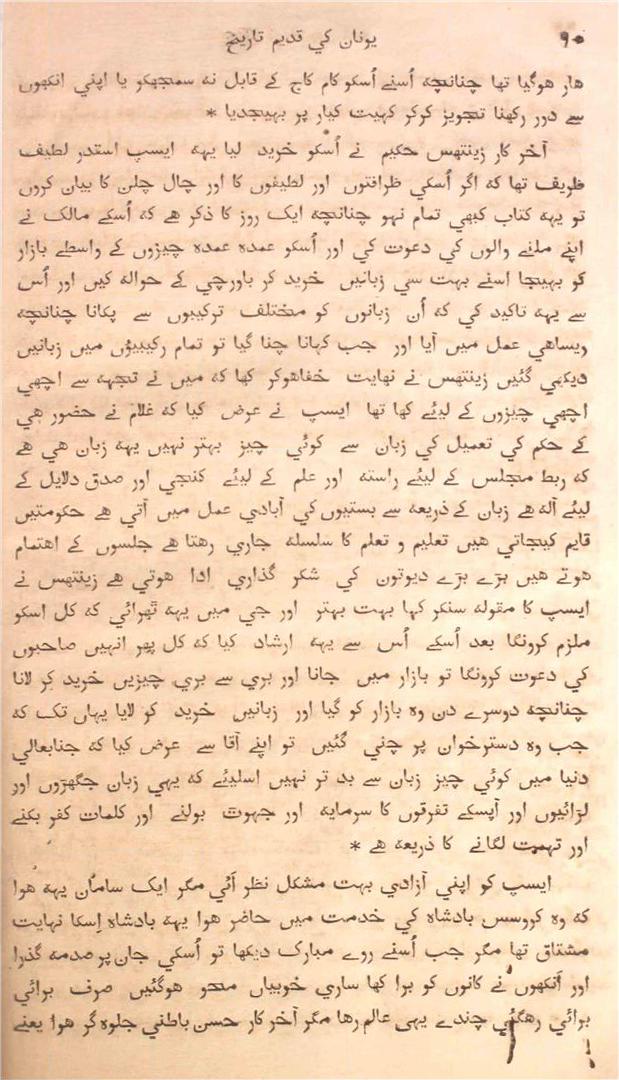 ۹۰ یونان کي قدیم تاریخ
هار هوگیا تها چنانچه اُسنے اُسکو کام کاج کے قابل نه سمجهکو یا اپني انکهوں
سے دور رکهنا تجویز کرکر کهیت کیار پر بهیجدیا *
آخر کار زینتهس حکیم نے اُسکو خرید لیا یهه ایسپ استدر لطیف
ظریف تها که اگر اُسکي ظرافتوں اور لطیفوں کا اور چال چلن کا بیان کروں
تو یهه کتاب کبهي تمام نهو چنانچه ایک روز کا ذکر هے که اُسکے مالک نے
اپنے ملنے والوں کي دعوت کي اور اُسکو عمده عمده چیزوں کے واسطے بازار
کو بهیجا اسنے بهت سي زبانیں خرید کر باورچي کے حواله کیں اور اُس
سے یهه تاکید کي که اُن زبانوں کو مختلف ترکیبوں سے پکانا چنانچه
ویساهي عمل میں آیا اور جب کهانا چنا گیا تو تمام رکیبیوٗں میں زبانیں
دیکهي گئیں زینتهس نے نهایت خفاهوکر کها که میں نے تجهه سے اچهي
اچهي چیزوں کے لیئے کها تها ایسپ نے عرض کیا که غلام نے حضور هي
کے حکم کي تعمیل کي زبان سے کوئي چیز بهتر نهیں یهه زبان هي هے
که ربط مجلس کے لیئے راسته اور علم کے لیئے کنجي اور صدق دلایل کے
لیئے آله هے زبان کے ذریعه سے بستیوں کي آبادي عمل میں آتي هے حکومتیں
قایم کیجاتي هیں تعلیم و تعلم کا سلسله جاري رهتا هے جلسوں کے اهتمام
هوتے هیں بڑے بڑے دیوتون کي شکر گذاري ادا هوتي هے زینتهس نے
ایسپ کا مقوله سنکر کها بهت بهتر اور جي میں یهه ٹهرائي که کل اسکو
ملزم کرونگا بعد اُسکے اُس سے یهه ارشاد کیا که کل پهر انهیں صاحبوں
کي دعوت کرونگا تو بازار میں جانا اور بري سے بري چیزیں خرید کر لانا
چنانچه دوسرے دن وه بازار کو گیا اور زبانیں خرید کو لایا یهاں تک که
جب وه دسترخوان پر چني گئیں تو اپنے آقا سے عرض کیا که جنابعالي
دنیا میں کوئي چیز زبان سے بد تر نهیں اسلیئے که یهي زبان جگهڑوں اور
لڑائیوں اور آپسکے تفرقوں کا سرمایه اور جهوٹ بولنے اور کلمات کفر بکنے
اور تهمت لگانے کا ذریعه هے *
ایسپ کو اپني آزادي بهت مشکل نظر آئي مگر ایک سامان یهه هوا
که وه کروسس بادشاه کي خدمت میں حاضر هوا یهه بادشاه اِسکا نهایت
مشتاق تها مگر جب اُسنے روے مبارک دیکها تو اُسکي جان پر صدمه گذرا
اور آنکهوں نے کانوں کو برا کها ساري خوبیاں محو هوگئیں صرف برائي
برائي رهگئي چندے یهي عالم رها مگر آخر کار حسن باطني جلوه گر هوا یعنے